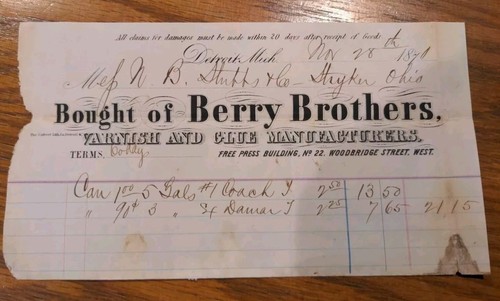 All claims for damages must be made within 20 days after receipt of Goods
Detroit, Mich. Nov 28th 1870
Mess N. B. Stubbs & Co - Stryker Ohio
Bought of Berry Brothers,
VARNISH AND GLUE MANUFACTURERS.
TERMS, FREE PRESS BUILDING, No 22. WOODBRIDGE STREET, WEST.
Can 1 00 5 Gals #1 Coach T 2 50 13 50
" 90¢ 3 " Damar T 2 25 7 65 21 15